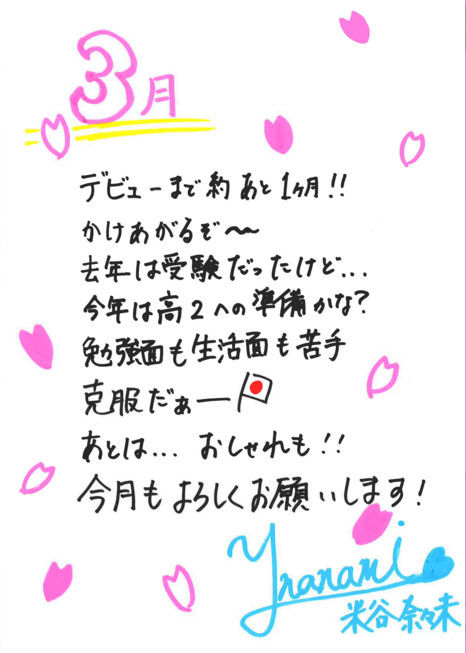 3月
デビューまで約あと1ヶ月!!
かけあがるぞ〜
去年は受験だったけど...
今年は高2への準備かな?
勉強面も生活面も苦手
克服だぁー
あとは... おしゃれも!!
今月もよろしくお願いします!
Ynanami
米谷奈々未